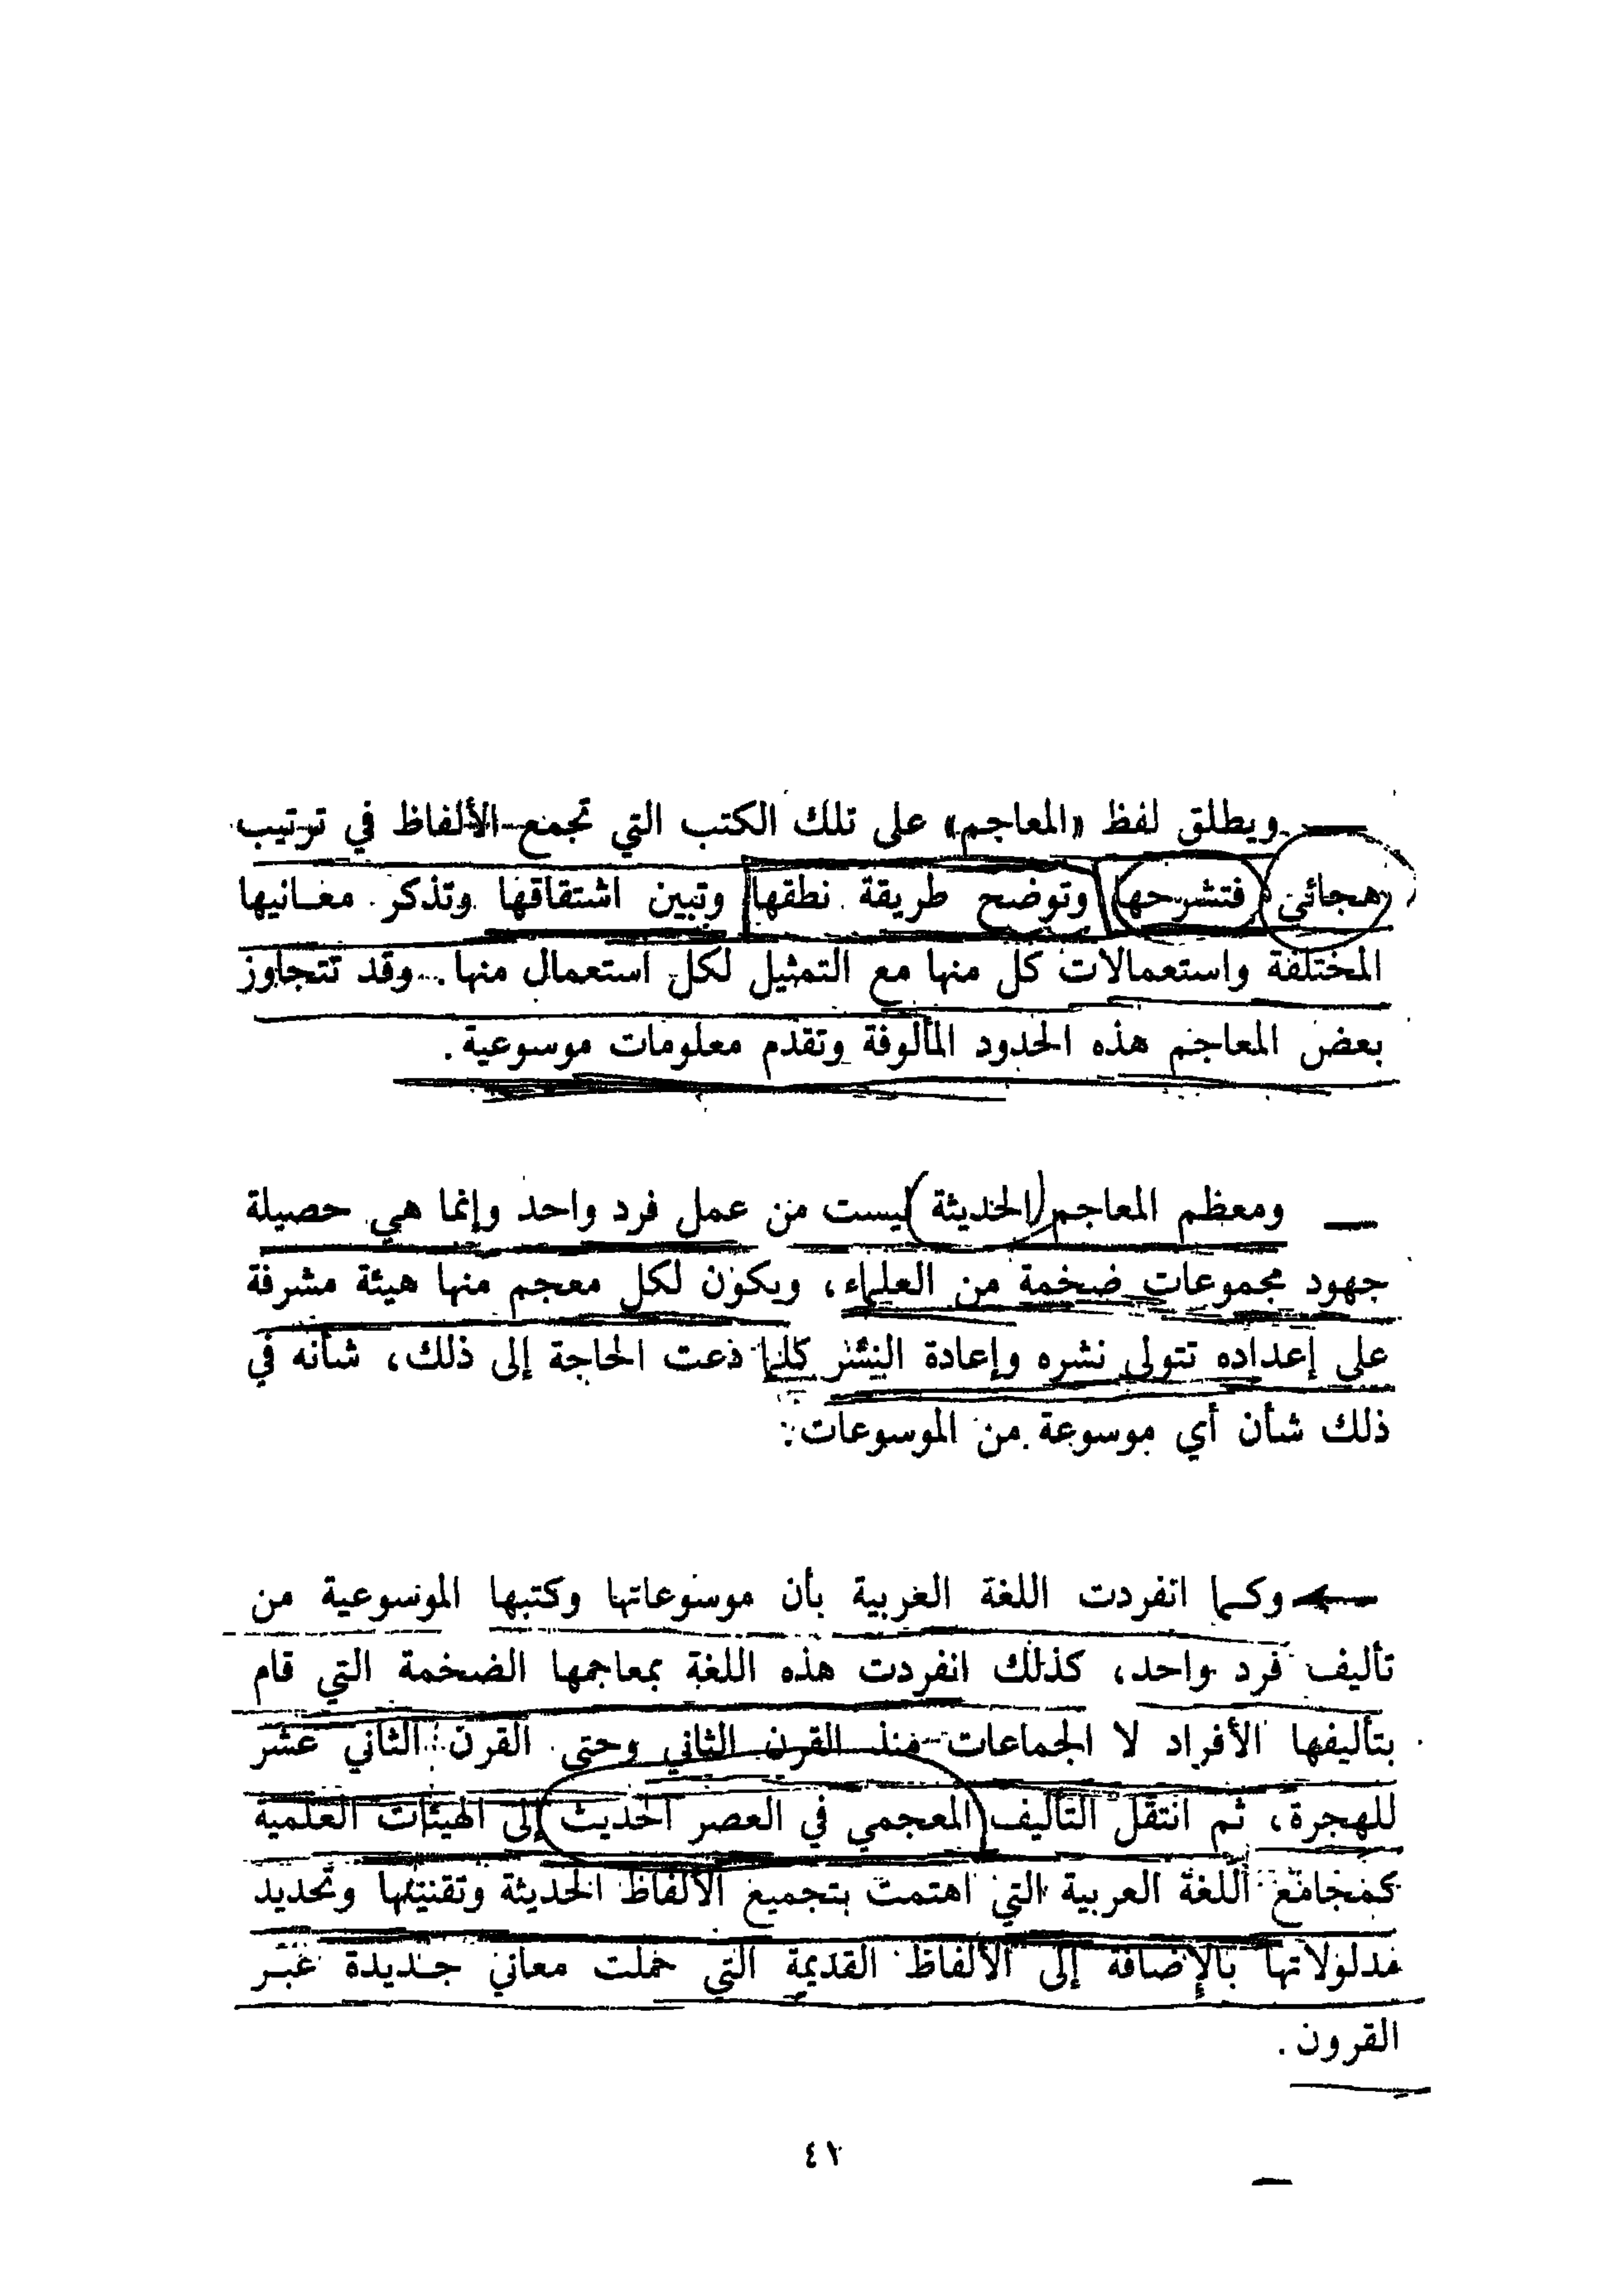 ويطلق لفظ «المعاجم» على تلك الكتب التي تجمع الألفاظ في ترتيب
هجائي فتشرحها وتوضح طريقة نطقها وتبين اشتقاقها وتذكر معانيها
المختلفة واستعمالات كل منها مع التمثيل لكل استعمال منها. وقد تتجاوز
بعض المعاجم هذه الحدود المألوفة وتقدم معلومات موسوعية.
ومعظم المعاجم الحديثة ليست من عمل فرد واحد وإنما هي حصيلة
جهود مجموعات ضخمة من العلماء، ويكون لكل معجم منها هيئة مشرفة
على إعداده تتولى نشره وإعادة النشر كلما دعت الحاجة إلى ذلك، شأنه في
ذلك شأن أي موسوعة من الموسوعات.
وكما انفردت اللغة العربية بأن موسوعاتها وكتبها الموسوعية من
تأليف فرد واحد، كذلك انفردت هذه اللغة بمعاجمها الضخمة التي قام
بتأليفها الأفراد لا الجماعات منذ القرن الثاني وحتى القرن الثاني عشر
للهجرة، ثم انتقل التأليف المعجمي في العصر الحديث إلى الهيئات العلمية
كمجامع اللغة العربية التي اهتمت بتجميع الألفاظ الحديثة وتقنينها وتحديد
مدلولاتها بالإضافة إلى الألفاظ القديمة التي حملت معاني جديدة عبر
القرون.